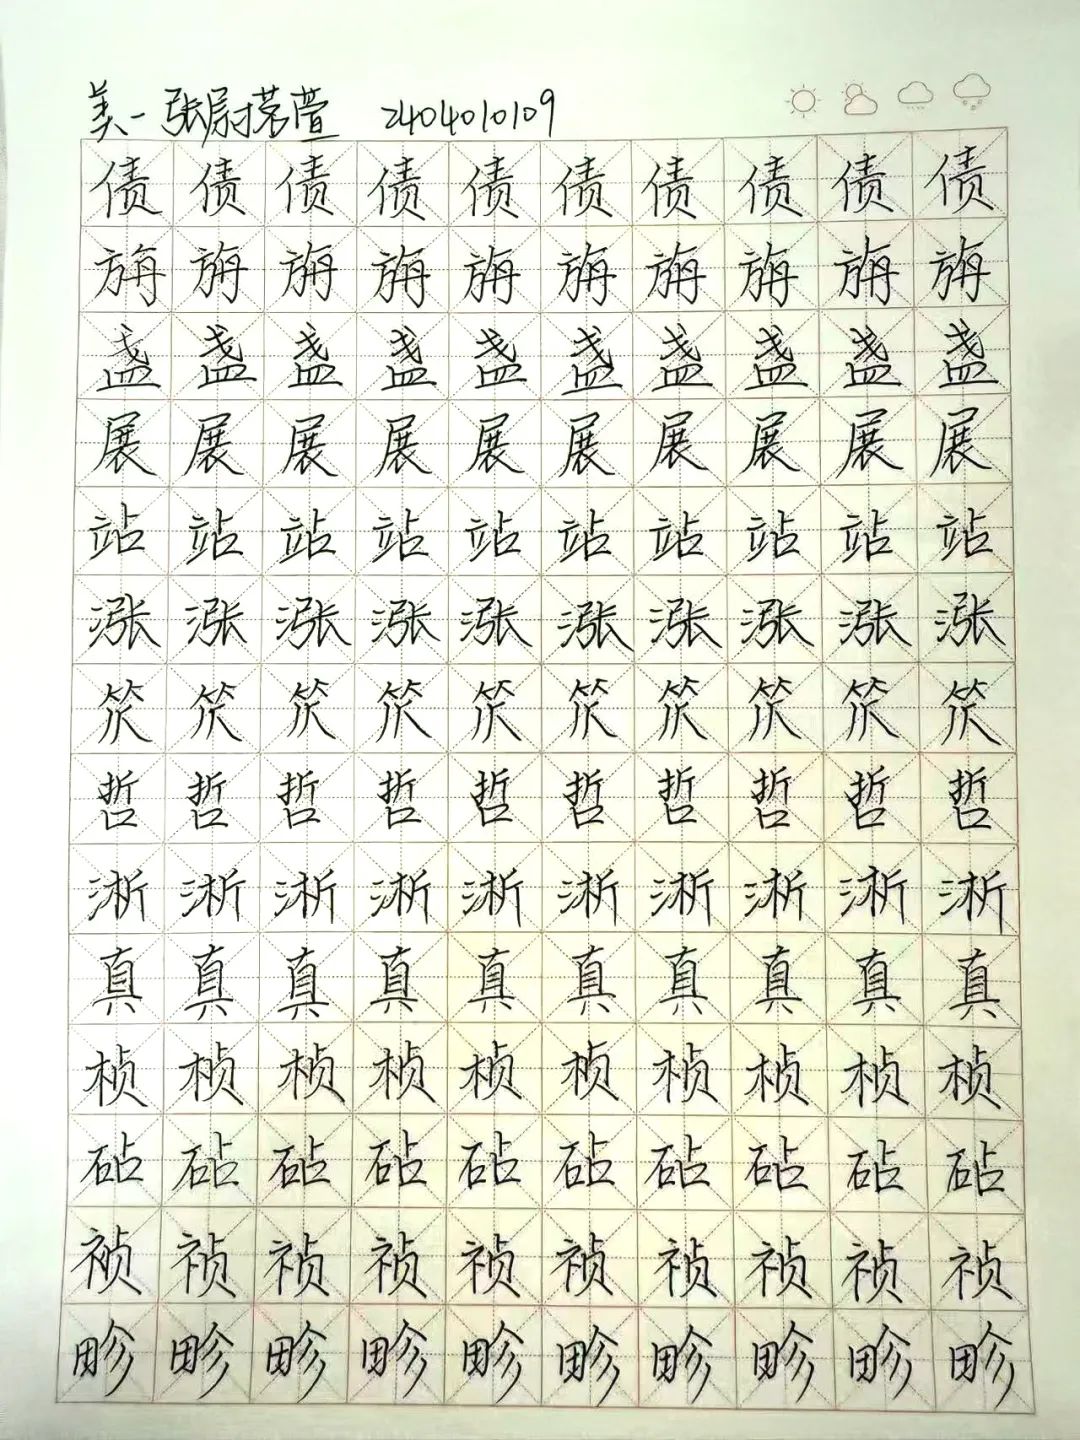 美一 张尉茗萱 2404010109
债债债债债债债债债债
旃旃旃旃旃旃旃旃旃旃
盏盏盏盏盏盏盏盏盏盏
展展展展展展展展展展
站站站站站站站站站站
涨涨涨涨涨涨涨涨涨涨
笊笊笊笊笊笊笊笊笊笊
哲哲哲哲哲哲哲哲哲哲
浙浙浙浙浙浙浙浙浙浙
真真真真真真真真真真
桢桢桢桢桢桢桢桢桢桢
砧砧砧砧砧砧砧砧砧砧
祯祯祯祯祯祯祯祯祯祯
畛畛畛畛畛畛畛畛畛畛